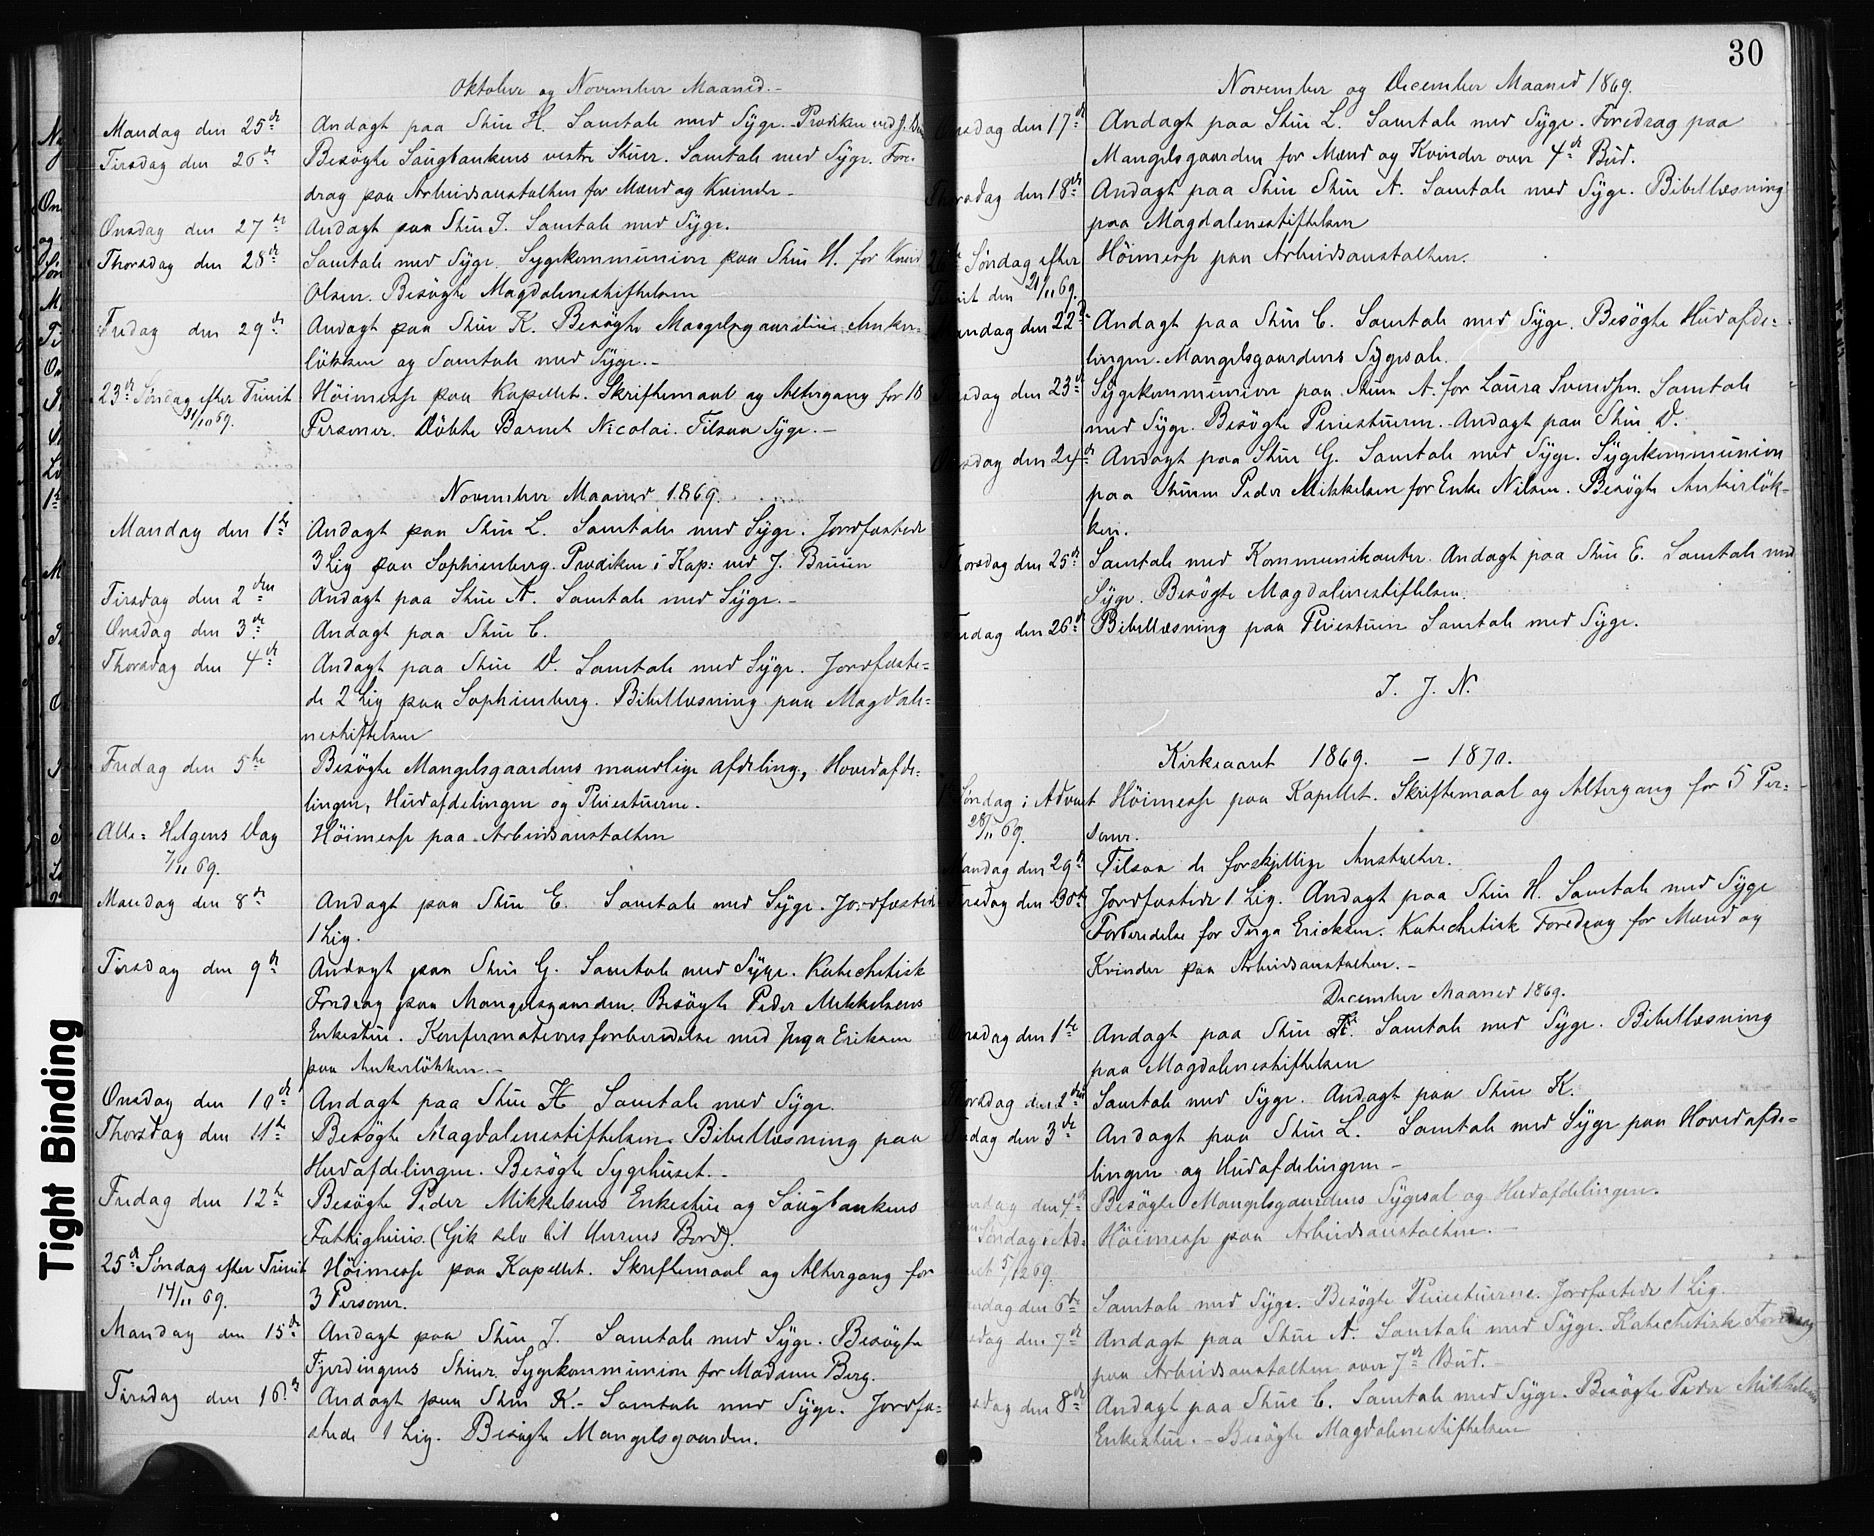 Oktober og November Maaned.-
Mandag den 25de Andagt paa Stue H. Samtale med Syge. Prædiken ved J.
Tirsdag den 26de Besøgte Saugbankens vestre Stuer. Samtale med Syge. Fore-
drag paa Arbeidsanstalten for Mænd og Kvinder-
Onsdag den 27de Andagt paa Stue I. Samtale med Syge.
Thorsdag den 28de Samtale med Syge. Sygekommunion paa Stue H. for
Olsen. Besøgte Magdalenestiftelsen
Fredag den 29de Andagt paa Stue K. Besøgte Mangelsgaarden. Anker-
løkken og Samtale med Syge.-
23de Søndag efter Trinit Høimesse paa Kapellet. Skriftemaal og Altergang for 18
31/10 69. Personer. Døbte Barnet Nicolai. Tilsaa Syge.-
November Maaned 1869.
Mandag den 1ste Andagt paa Stue L. Samtale med Syge. Jordfæstede
3 Lig paa Sophienberg. Prædiken i Kap: ved J. Bruun
Tirsdag den 2den Andagt paa Stue A. Samtale med Syge.-
Onsdag den 3de Andagt paa Stue C.
Thorsdag den 4de Andagt paa Stue D. Samtale med Syge. Jordfæste=
de 2 Lig paa Sophienberg. Bibellæsning paa Magdale=
nestiftelsen
Fredag den 5te Besøgte Mangelsgaardens mandlige Afdeling, Hovedafde-
lingen, Hudafdelingen og Pleiestuerne.
Alle= Helgens Dag Høimesse paa Arbeidsanstalten
7/11 69.
Mandag den 8de Andagt paa Stue E. Samtale med Syge. Jordfæstede
1 Lig.
Tirsdag den 9de Andagt paa Stue G. Samtale med Syge. Katechetisk
Foredrag paa Mangelsgaarden. Besøgte Peder Mikkelsens
Enkestue. Konfirmationsforberedelse med Inga Eriksen
paa Ankerløkken.-
Onsdag den 10de Andagt paa Stue H Samtale med Syge.
Thorsdag den 11te Besøgte Magdalenestiftelsen. Bibellæsning paa
Hudafdelingen. Besøgte Sygehuset.-
Fredag den 12te Besøgte Peder Mikkelsens Enkestue og Saugbankens
Fattighuus. (Gik selv til Herrens Bord).
25de Søndag efter Trinit Høimesse paa Kapellet. Skriftemaal og Altergang for
14/11 69. 3 Personer.
Mandag den 15de Andagt paa Stue I. Samtale med Syge. Besøgte
Fjerdingens Stuer. Sygekommunion for Madam Berg.
Tirsdag den 16de Andagt paa Stue K.- Samtale med Syge. Jordfæ=
stede 1 Lig. Besøgte Mangelsgaarden.
30
November og December Maaned 1869.
Onsdag den 17de Andagt paa Stue L. Samtale med Syge. Foredrag paa
Mangelsgaarden for Mænd og Kvinder over 4de Bud.
Thorsdag den 18de Andagt paa Stue Stue A. Samtale med Syge. Bibellæsning
paa Magdalenestiftelsen
26de Søndag efter Høimesse paa Arbeidsanstalten.
Trinit den 21/11 69.
Mandag den 22de Andagt paa Stue C. Samtale med Syge. Besøgte Hudafde=
lingen. Mangelsgaardens Sygesale.
Tirsdag den 23de Sygekommunion paa Stue A. for Laura Svendsen. Samtale
med Syge. Besøgte Pleiestuerne. Andagt paa Stue D.
Onsdag den 24de Andagt paa Stue G. Samtale med Syge. Sygekommunion
paa Stuen Peder Mikkelsen for Enke Nilsen. Besøgte Ankerløk-
ken.
Thorsdag den 25de Samtale med Kommunikanter. Andagt paa Stue E. Samtale med
Syge. Besøgte Magdalenestiftelsen.
Fredag den 26de Bibellæsning paa Pleiestuen Samtale med Syge.
I. J. N.
Kirkeaaret 1869. - 1870.
1 Søndag i Advent Høimesse paa Kapellet. Skriftemaal og Altergang for 5 Per=
28/11 69. soner.
Mandag den 29de Tilsaa de forskjellige Anstalter.
Tirsdag den 30te Jordfæstede 1 Lig. Andagt paa Stue H. Samtale med Syge
Forberedelse for Inga Ericksen. Katechetisk Foredrag for Mænd og
Kvinder paa Arbeidsanstalten.-
December Maaned 1869.
Onsdag den 1ste Andagt paa Stue H. Samtale med Syge. Bibellæsning
paa Magdalenestiftelsen
Thorsdag den 2den Samtale med Syge. Andagt paa Stue K.
Fredag den 3de Andagt paa Stue L. Samtale med Syge paa Hovedafde=
lingen og Hudafdelingen-
den 4de Besøgte Mangelsgaardens Sygesal og Hudafdelingen.
Søndag i Ad- Høimesse paa Arbeidsanstalten.-
vent 5/12 69.
Mandag den 6te Samtale med Syge. Besøgte Pleiestuerne. Jordfæstede 1 Lig.
Tirsdag den 7de Andagt paa Stue A. Samtale med Syge. Katechetisk Foredrag
paa Arbeidsanstalten over 7de Bud.-
Onsdag den 8de Andagt paa Stue C. Samtale med Syge. Besøgte Peder Mikkelsens
Enkestue.- Besøgte Magdalenestiftelsen
Tight Binding